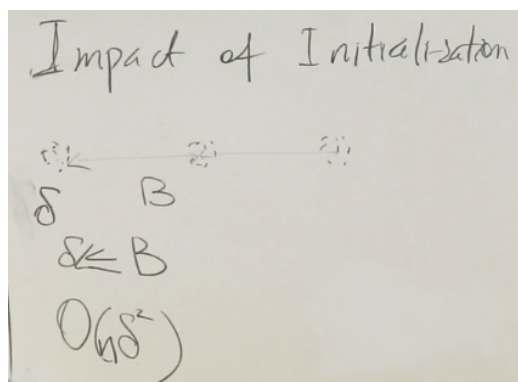 Impact of Initialization
δ B
δ ≪ B
O(nδ²)